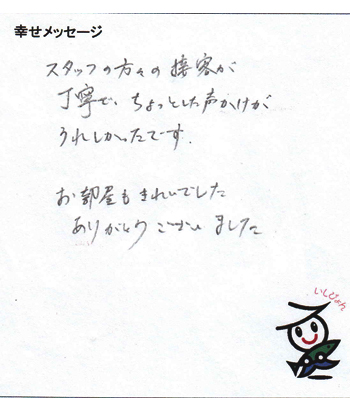 幸せメッセージ
スタッフの方々の接客が
丁寧で、ちょっとした声かけが
うれしかったです.
お部屋もきれいでした
ありがとうございました
いしぴょん